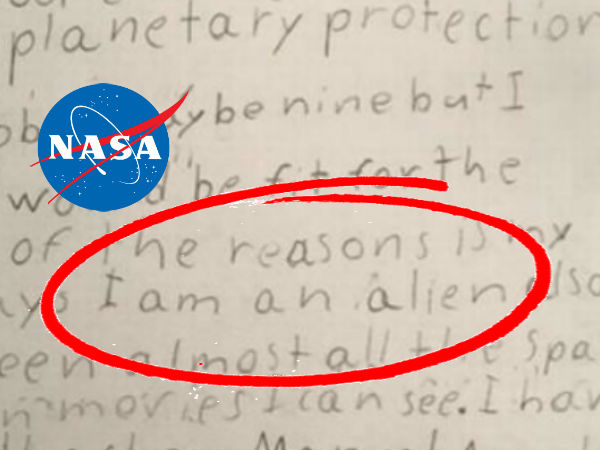 planetary protection
ybe nine but I
NASA
would be fit for the
of the reasons is my
ays I am an alien also
een almost all the spa
n movies I can see. I hav